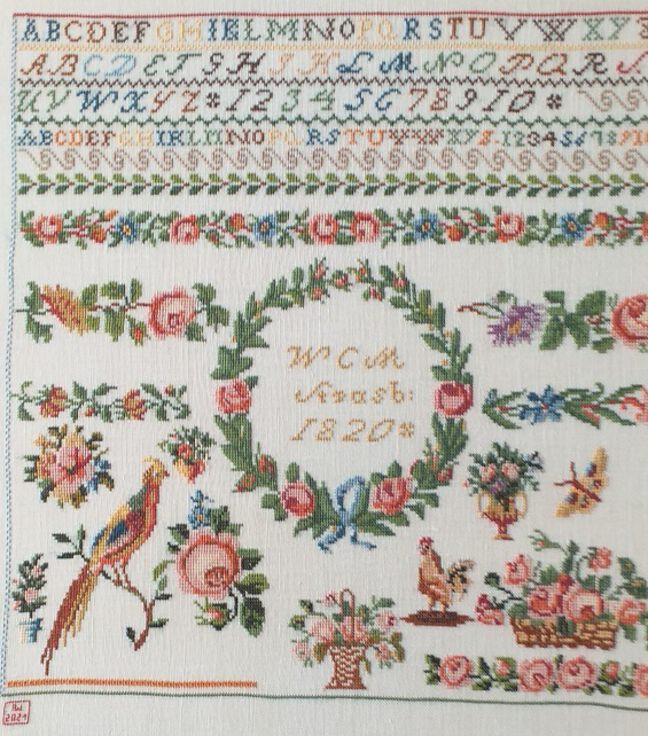 ABCDEFGHIKLMNOPQRSTUVWXY
ABCDEFGHIKLMNOPQRS
UVWXYZ*12345678910*
ABCDEFGHIKLMNOPQRSTUVWXYZ.12345678910
W C M
Strasb:
1820*
2021